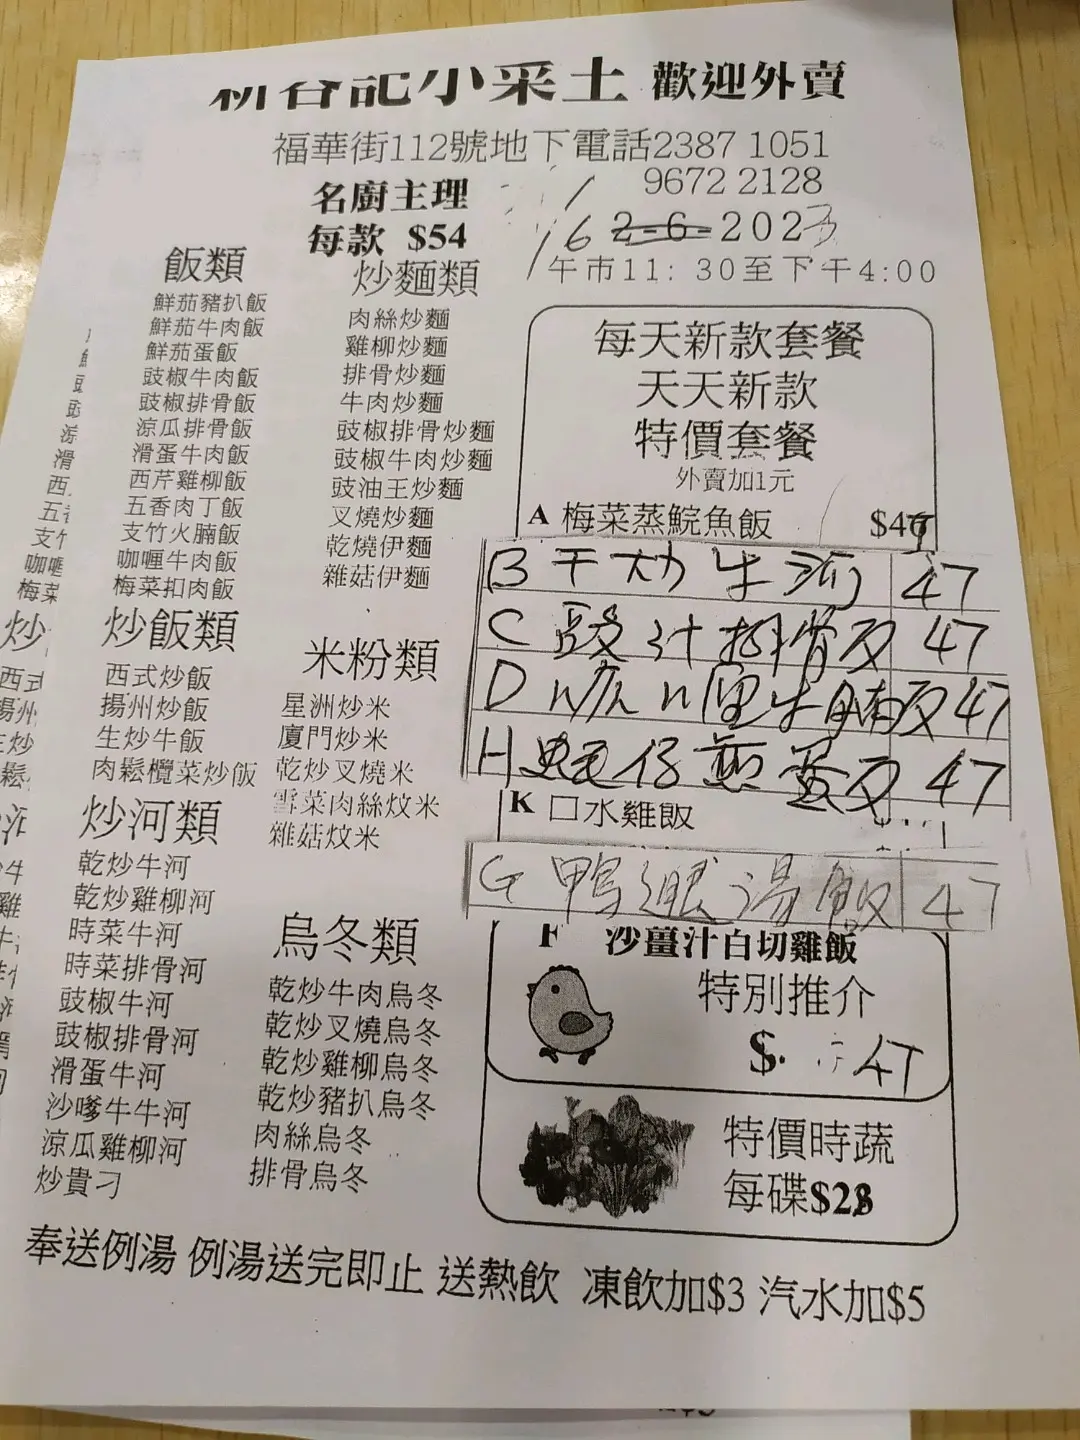 記小菜王 歡迎外賣
福華街112號地下電話2387 1051
9672 2128
名廚主理
每款 $54
16 2-6-2023
午市11: 30至下午4:00
飯類
鮮茄豬扒飯
鮮茄牛肉飯
鮮茄蛋飯
豉椒牛肉飯
豉椒排骨飯
涼瓜排骨飯
滑蛋牛肉飯
西芹雞柳飯
五香肉丁飯
支竹火腩飯
咖喱牛肉飯
梅菜扣肉飯
炒飯類
西式炒飯
揚州炒飯
生炒牛飯
肉鬆欖菜炒飯
炒河類
乾炒牛河
乾炒雞柳河
時菜牛河
時菜排骨河
豉椒牛河
豉椒排骨河
滑蛋牛河
沙嗲牛牛河
涼瓜雞柳河
炒貴刁
炒麵類
肉絲炒麵
雞柳炒麵
排骨炒麵
牛肉炒麵
豉椒排骨炒麵
豉椒牛肉炒麵
豉油王炒麵
叉燒炒麵
乾燒伊麵
雜菇伊麵
米粉類
星洲炒米
廈門炒米
乾炒叉燒米
雪菜肉絲炆米
雜菇炆米
烏冬類
乾炒牛肉烏冬
乾炒叉燒烏冬
乾炒雞柳烏冬
乾炒豬扒烏冬
肉絲烏冬
排骨烏冬
每天新款套餐
天天新款
特價套餐
外賣加1元
A 梅菜蒸鯇魚飯 $47
B 干炒牛河 47
C 豉汁排骨反 47
D 咖喱牛腩反 47
H 蚝仔煎蛋反 47
K 口水雞飯
G 鴨腿湯飯 47
F 沙薑汁白切雞飯
特別推介
$ 47
特價時蔬
每碟$28
奉送例湯 例湯送完即止 送熱飲 凍飲加$3 汽水加$5